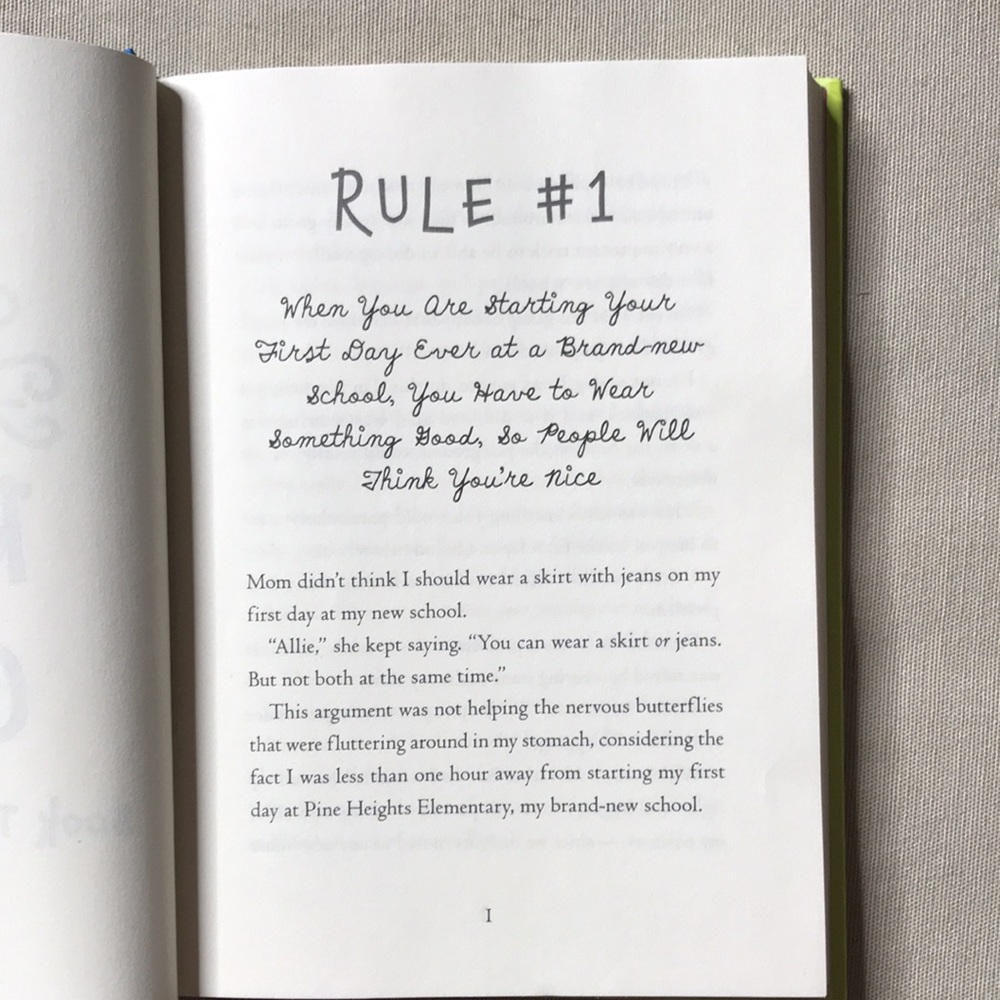 RULE #1
When You Are Starting Your
First Day Ever at a Brand-new
School, You Have to Wear
Something Good, So People Will
Think You're Nice
Mom didn't think I should wear a skirt with jeans on my
first day at my new school.
“Allie,” she kept saying. “You can wear a skirt or jeans.
But not both at the same time.”
This argument was not helping the nervous butterflies
that were fluttering around in my stomach, considering the
fact I was less than one hour away from starting my first
day at Pine Heights Elementary, my brand-new school.
1